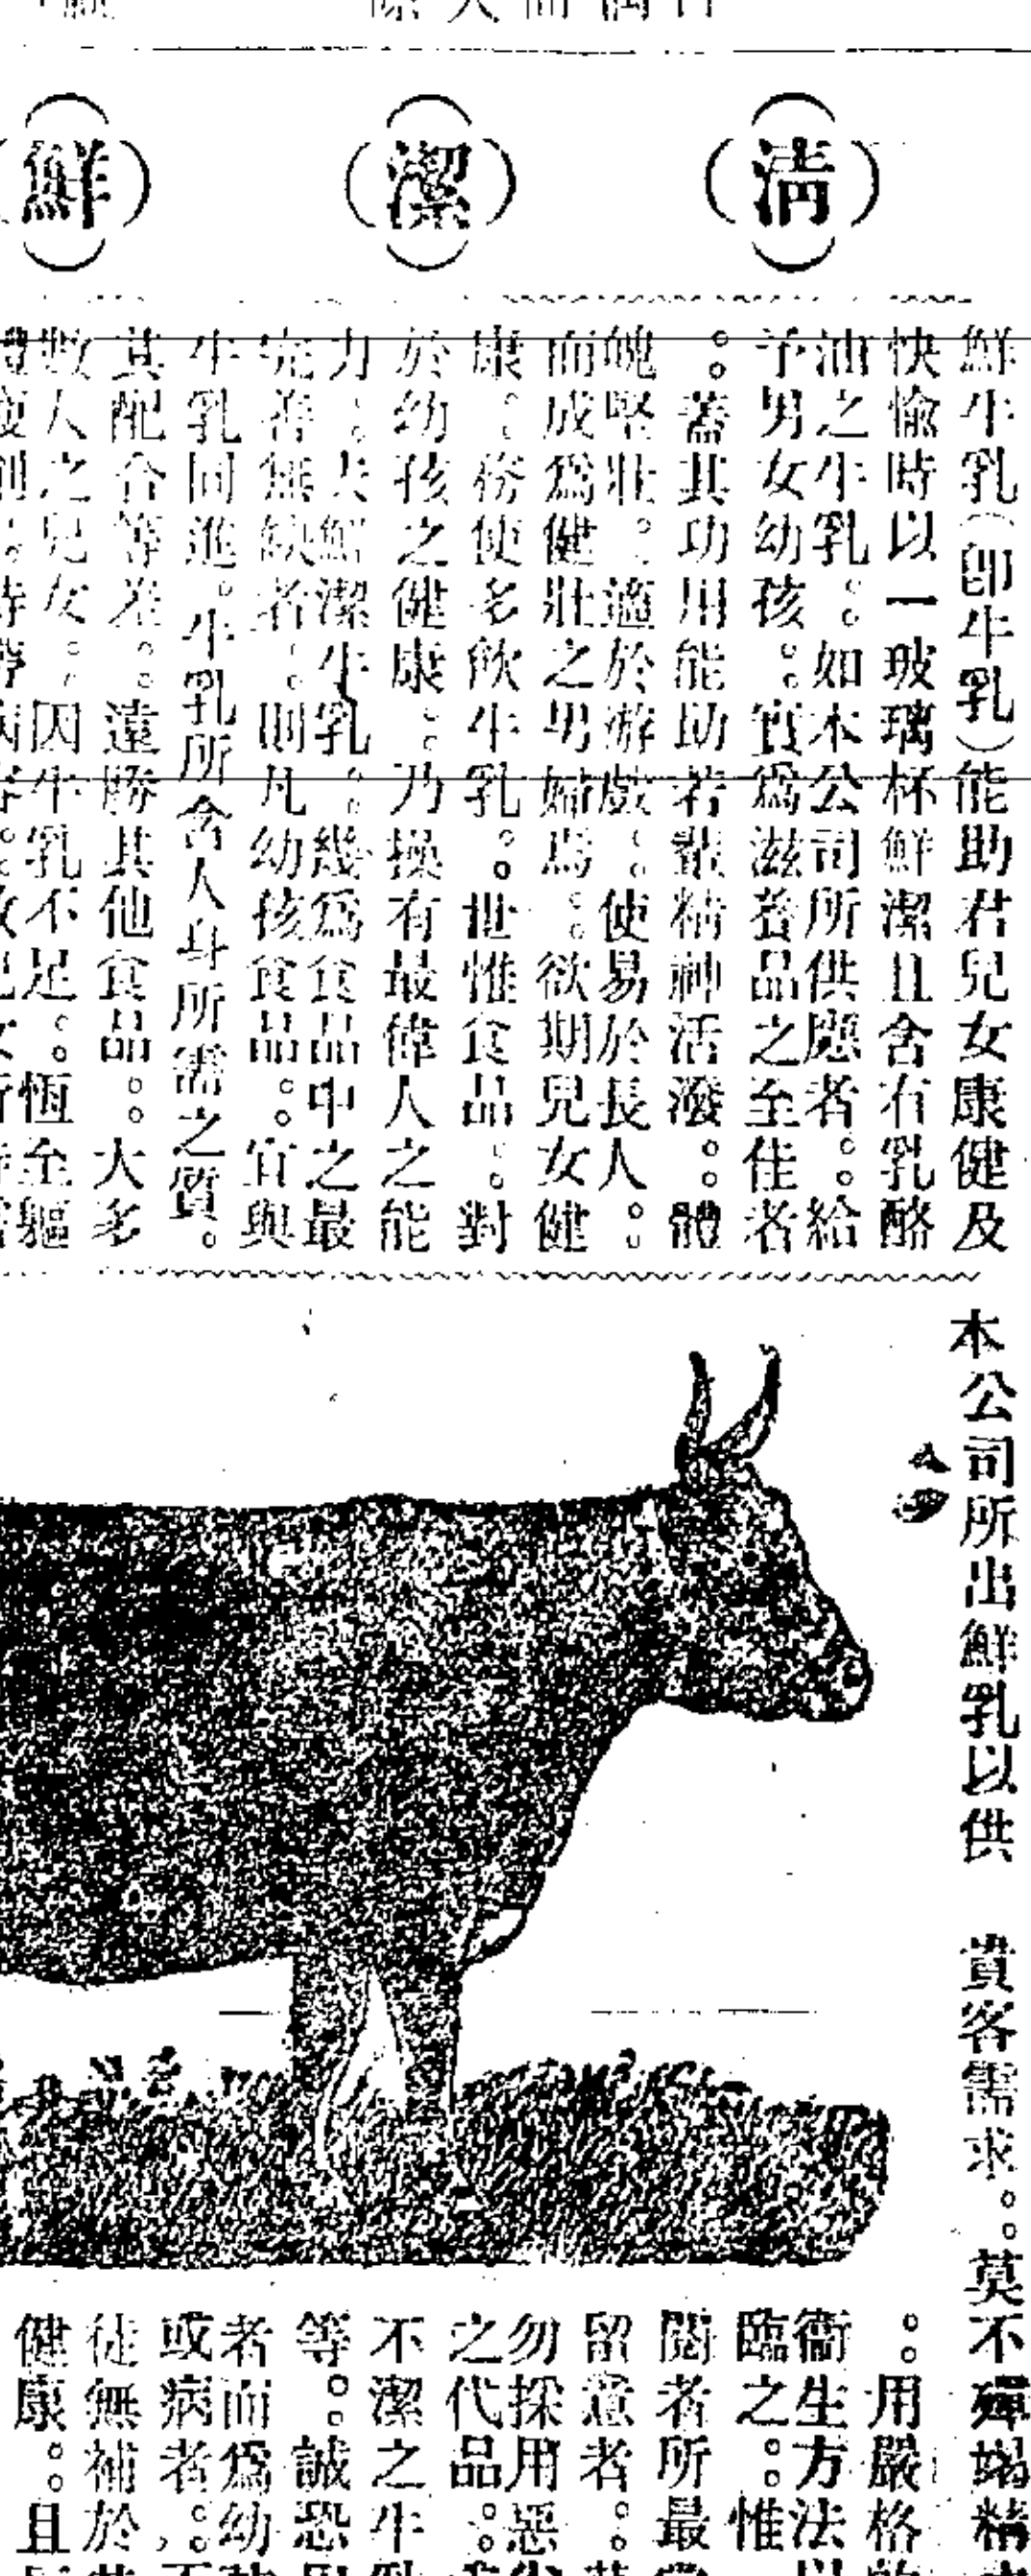 清潔鮮
鮮牛乳（卽牛乳）能助君兒女康健及
快愉時以一玻璃杯鮮潔且含有乳酪
油之牛乳。如本公司所供應者。給
予男女幼孩。實爲滋養品之至佳者
。蓋其功用能助若輩精神活潑。體
魄堅壯。適於游戲。使易於長人。
而成爲健壯之男婦焉。欲期兒女健
康。務使多飲牛乳。世惟食品。對
於幼孩之健康。乃操有最偉人之能
力。夫鮮潔牛乳。幾爲食品中之最
完善無缺者。則凡幼孩食品。宜與
牛乳同進。牛乳所含人身所需之質。
其配合等差。遠勝其他食品。大多
數人之兒女。因牛乳不足。恆至軀
本公司所出鮮乳以供 貴客需求。莫不殫竭精
。用嚴格
衞生方法以
臨之。惟
閱者所最
留意者。
勿採用惡
之代品。
不潔之牛
等。誠恐
者而爲幼
或病者。
徒無補於
健康。且